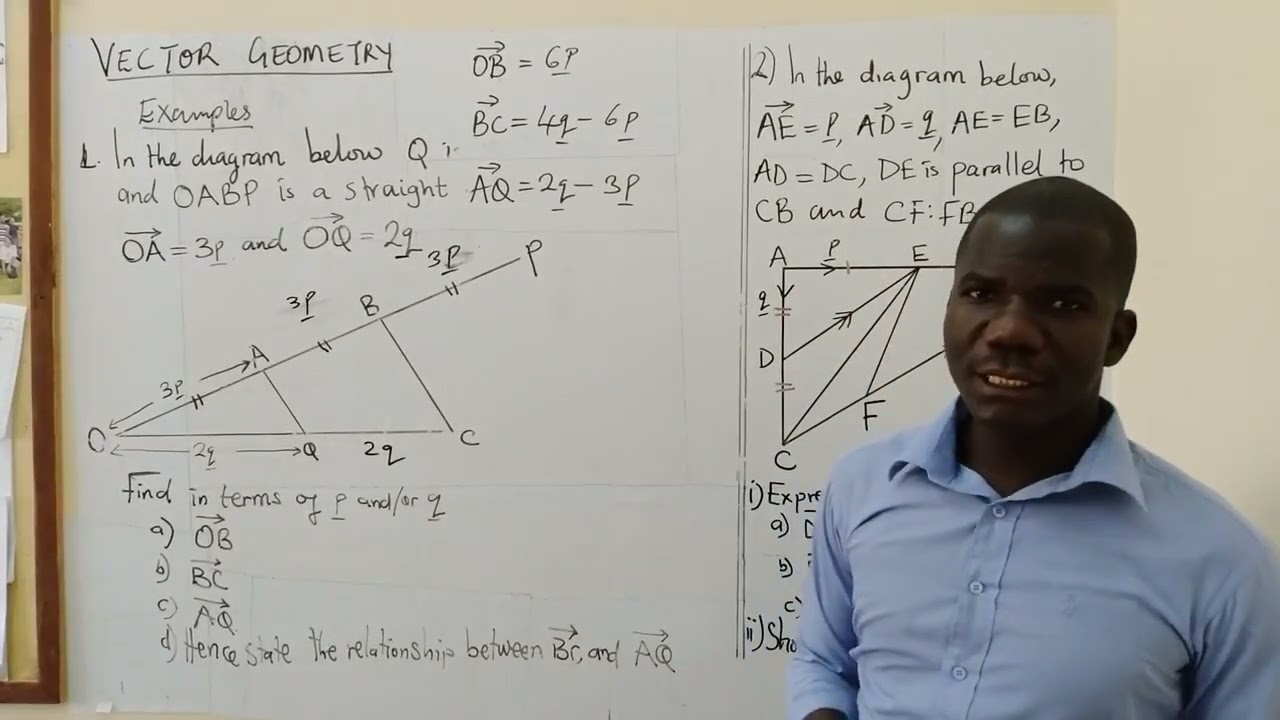 VECTOR GEOMETRY
Examples
1. In the diagram below Q i
and OABP is a straight
OA = 3p and OQ = 2q
OB = 6p
BC = 4q - 6p
AQ = 2q - 3p
3p
P
3p
B
A
3p
O
2q
Q
2q
C
Find in terms of p and/or q
a) OB
b) BC
c) AQ
d) Hence state the relationship between BC, and AQ
2) In the diagram below,
AE = p, AD = q, AE = EB,
AD = DC, DE is parallel to
CB and CF:FB
A
p
E
q
D
F
C
i)
a)
b)
c)
ii)